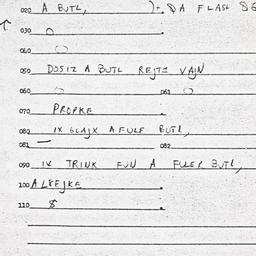 020 A BUTL,
030
040
050 DOSIZ A BUTL REJTS VAJN
060 061
070 PROPKE
080 IX GLAJX A FULF BUTL,
081 082
090 IV TRINK FUN A FULER BUTL,
100 ALKEJKE
110